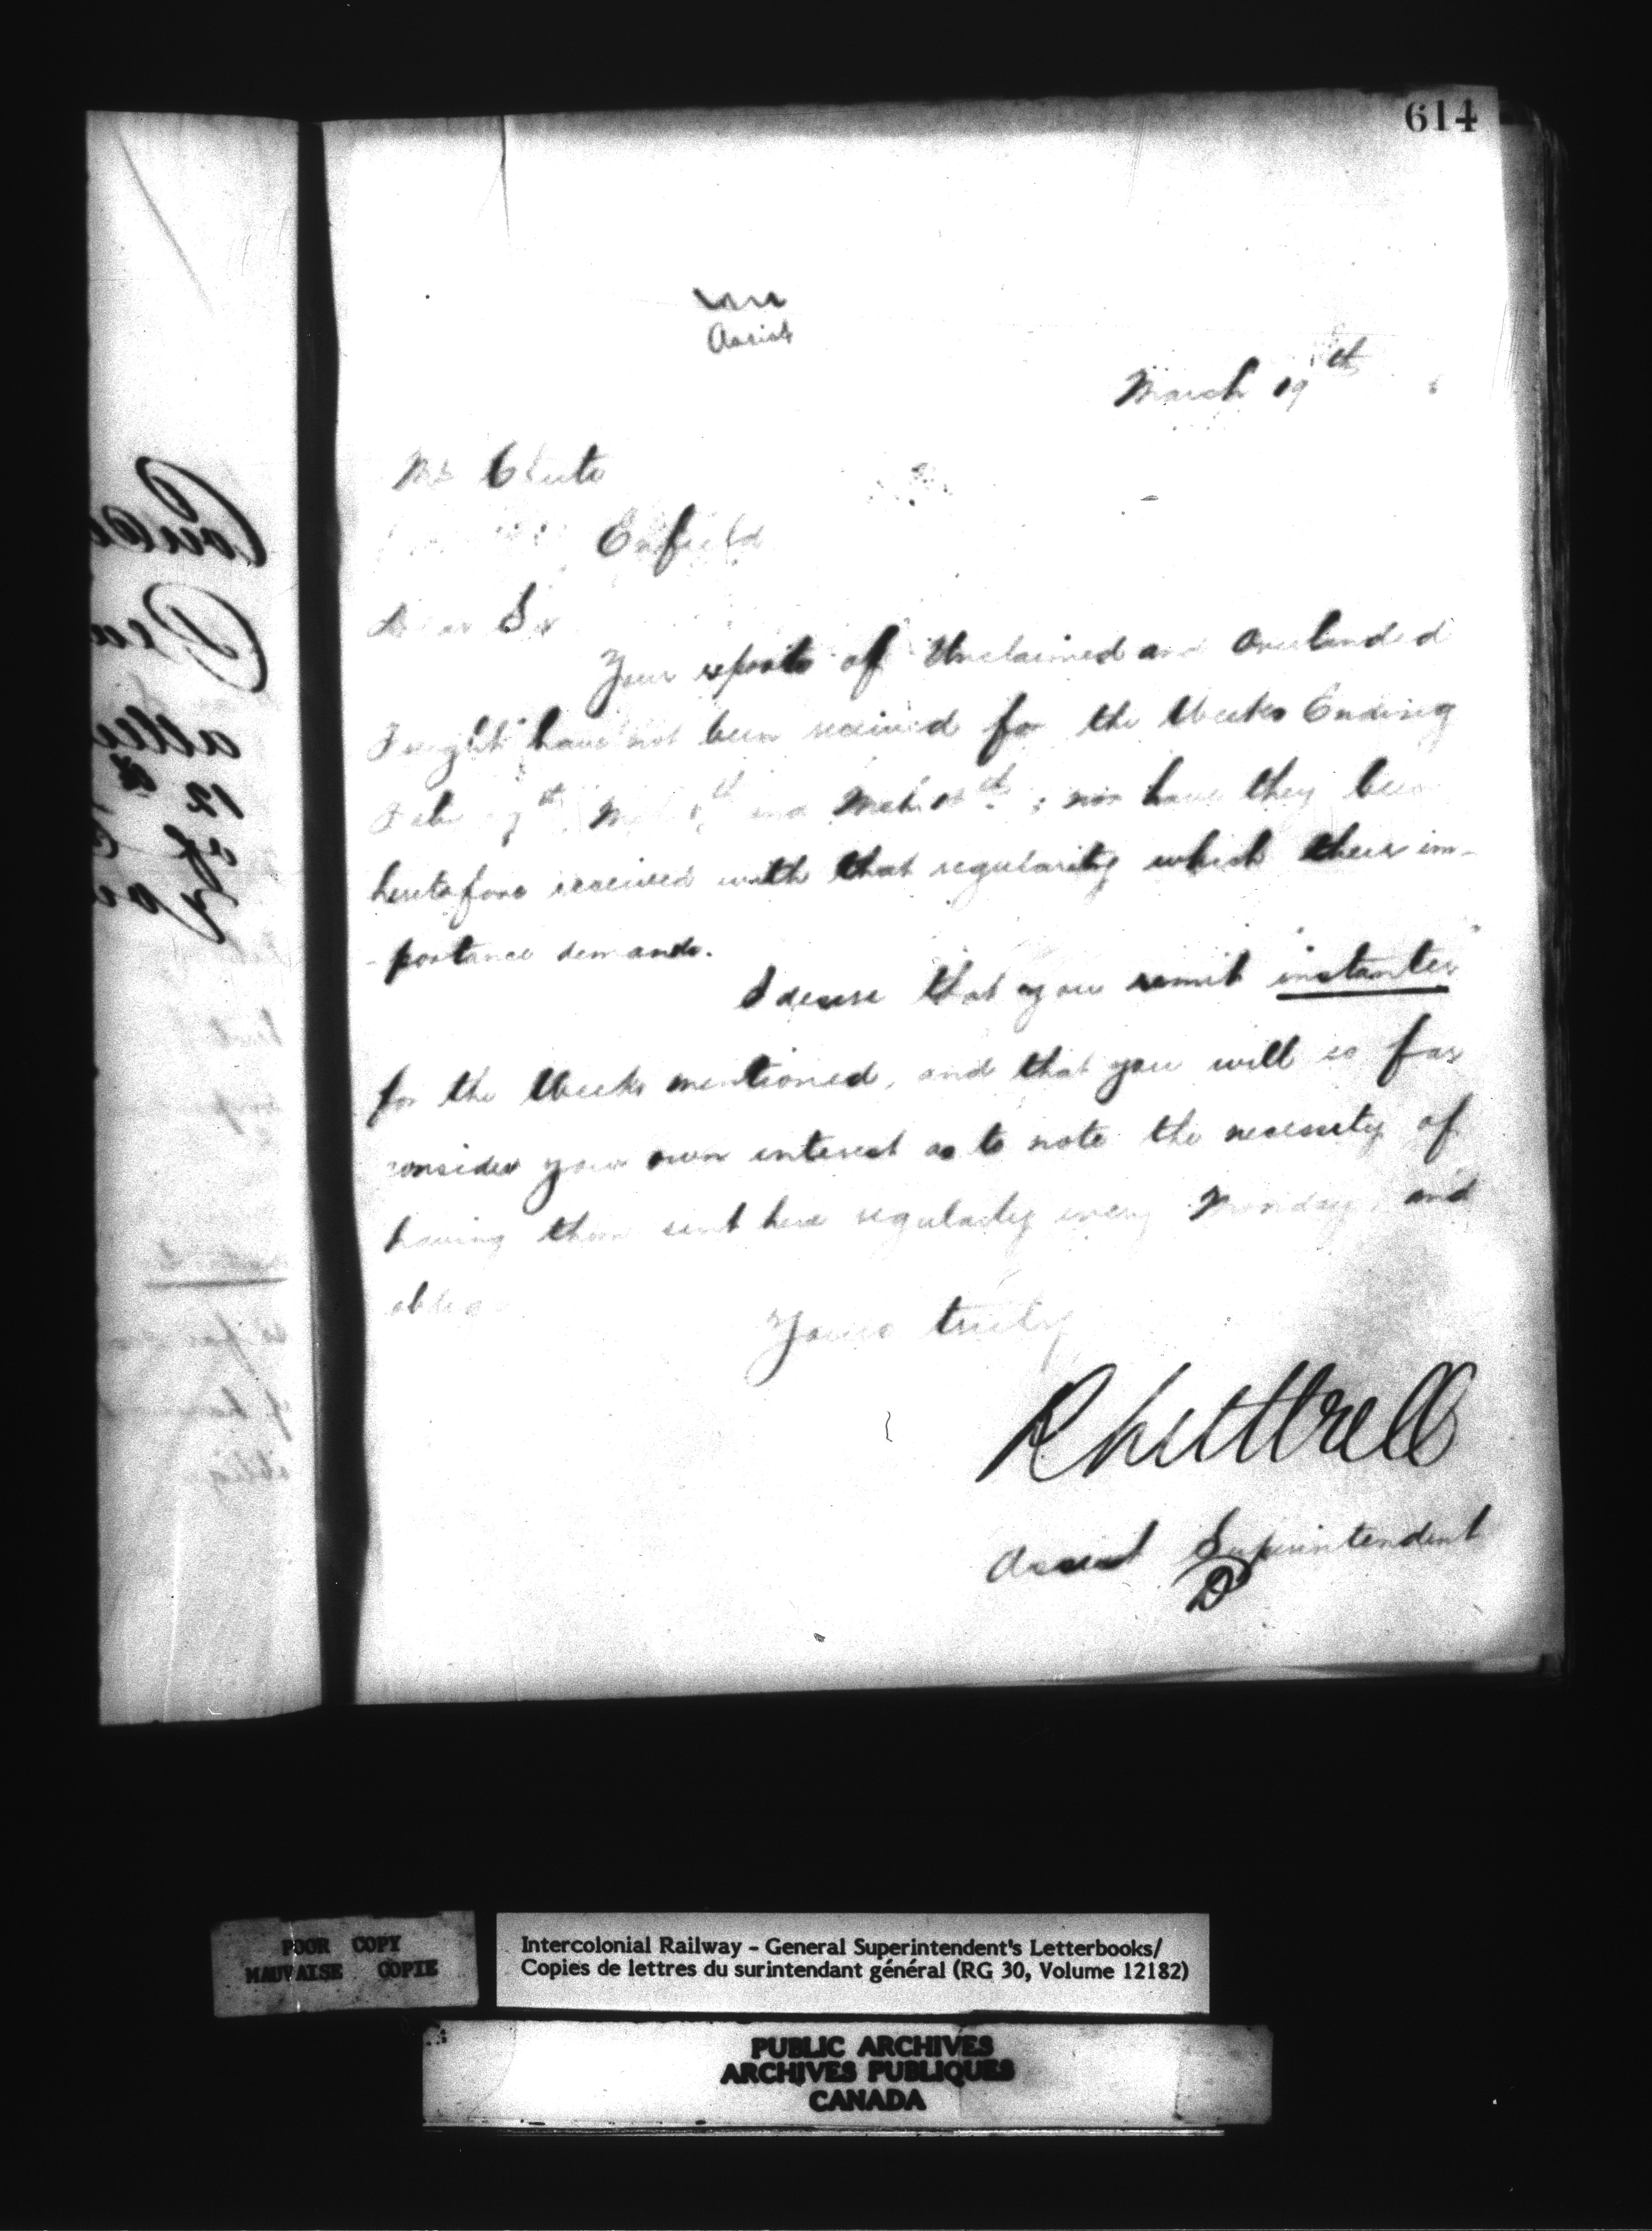 614
Assist
March 19th
Mr
Enfield
Dear Sir
Your reports of Unclaimed and Overlanded
Freight have not been received for the Weeks Ending
Feb th and Mch th ; nor have they been
heretofore received with that regularity which their im-
-portance demands.
I desire that you remit "instanter"
for the Weeks mentioned, and that you will so far
consider your own interest as to note the necessity of
having them sent here regularly every Monday, and
oblige
Yours truly
R Luttrell
Assist Superintendent
D
POOR COPY
MAUVAISE COPIE
Intercolonial Railway - General Superintendent's Letterbooks/
Copies de lettres du surintendant général (RG 30, Volume 12182)
PUBLIC ARCHIVES
ARCHIVES PUBLIQUES
CANADA